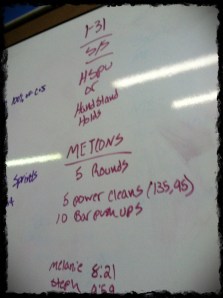 1-31
S/S
HSPU
or
Handstand
Holds
METCONS
5 Rounds
5 power cleans (135,95)
10 Bar push ups
Sprints
melanie 8:21
steph 9:59